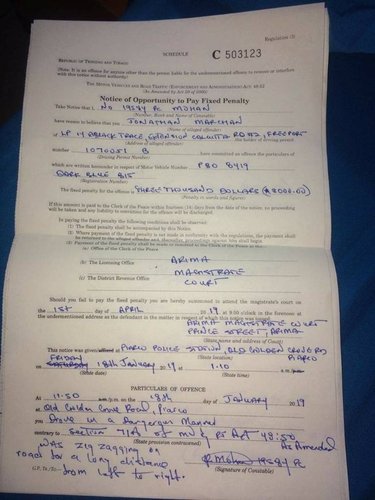 Regulation (3)
SCHEDULE
C 503123
REPUBLIC OF TRINIDAD AND TOBAGO
(Note: It is an offence for anyone other than the person liable for the undermentioned offence to remove or interfere
with this notice without authority)
THE MOTOR VEHICLES AND ROAD TRAFFIC (ENFORCEMENT AND ADMINISTRATION) ACT, 48:52
(As Amended by Act 29 of 2000)
Notice of Opportunity to Pay Fixed Penalty
Take Notice that I, No 19584 Pc MOHAN
(Name of Constable)
have reason to believe that you JONATHAN
(Name of alleged offender)
of LP 14 TRACE, EXTENSION CALCUTTA ROAD 2, FREEPORT
(Address of alleged offender) the holder of driving permit
number 1070051 B have committed an offence the particulars of
(Driving Permit Number)
which are written hereunder in respect of Motor Vehicle Number PBO 8419
DARK BLUE B15
(Registration Number)
The fixed penalty for the offence is THREE THOUSAND DOLLARS ($3000.00)
(Penalty in words and figures)
If this amount is paid to the Clerk of the Peace within fourteen (14) days from the date of the notice, no proceeding
will be taken and any liability to conviction for the offence will be discharged.
In paying the fixed penalty the following conditions shall be observed:
(1) The fixed penalty shall be accompanied by this Notice.
(2) Where payment of the fixed penalty is not made in conformity with the regulations, the payment shall
be returned to the alleged offender and thereafter proceedings against him shall begin.
(3) Payment of the fixed penalty shall be made to
(a) Office of the Clerk of the Peace
(b) The Licensing Office ARIMA
(c) The District Revenue Office MAGISTRATE
COURT
Should you fail to pay the fixed penalty you are hereby summoned to attend the magistrate's court on
the 1ST day of APRIL 2019 at 9:00 o'clock in the forenoon at
the undermentioned address as the defendant in the matter in respect of which this notice was issued.
ARIMA MAGISTRATE COURT
PRINCE STREET, ARIMA
(State name of court)
This notice was given PIARCO POLICE STATION, OLD GOLDEN GROVE RD
(State location) PIARCO
FRIDAY
on SATURDAY 18th JANUARY 2019 at 1:10 a.m.
(State date) (State time)
PARTICULARS OF OFFENCE
At 11:50 a.m./p.m. on the 18th day of JANUARY 2019
at Old Golden Grove Road, Piarco
you Drove in a Dangerous Manner
contrary to Section 71 of MV & RT Act 48:50
(State provision contravened) As Amended
WAS zig zagging on
road for a long distance
from left to right. 19584 Pc
G.P., Tr./To. (Signature of Constable)